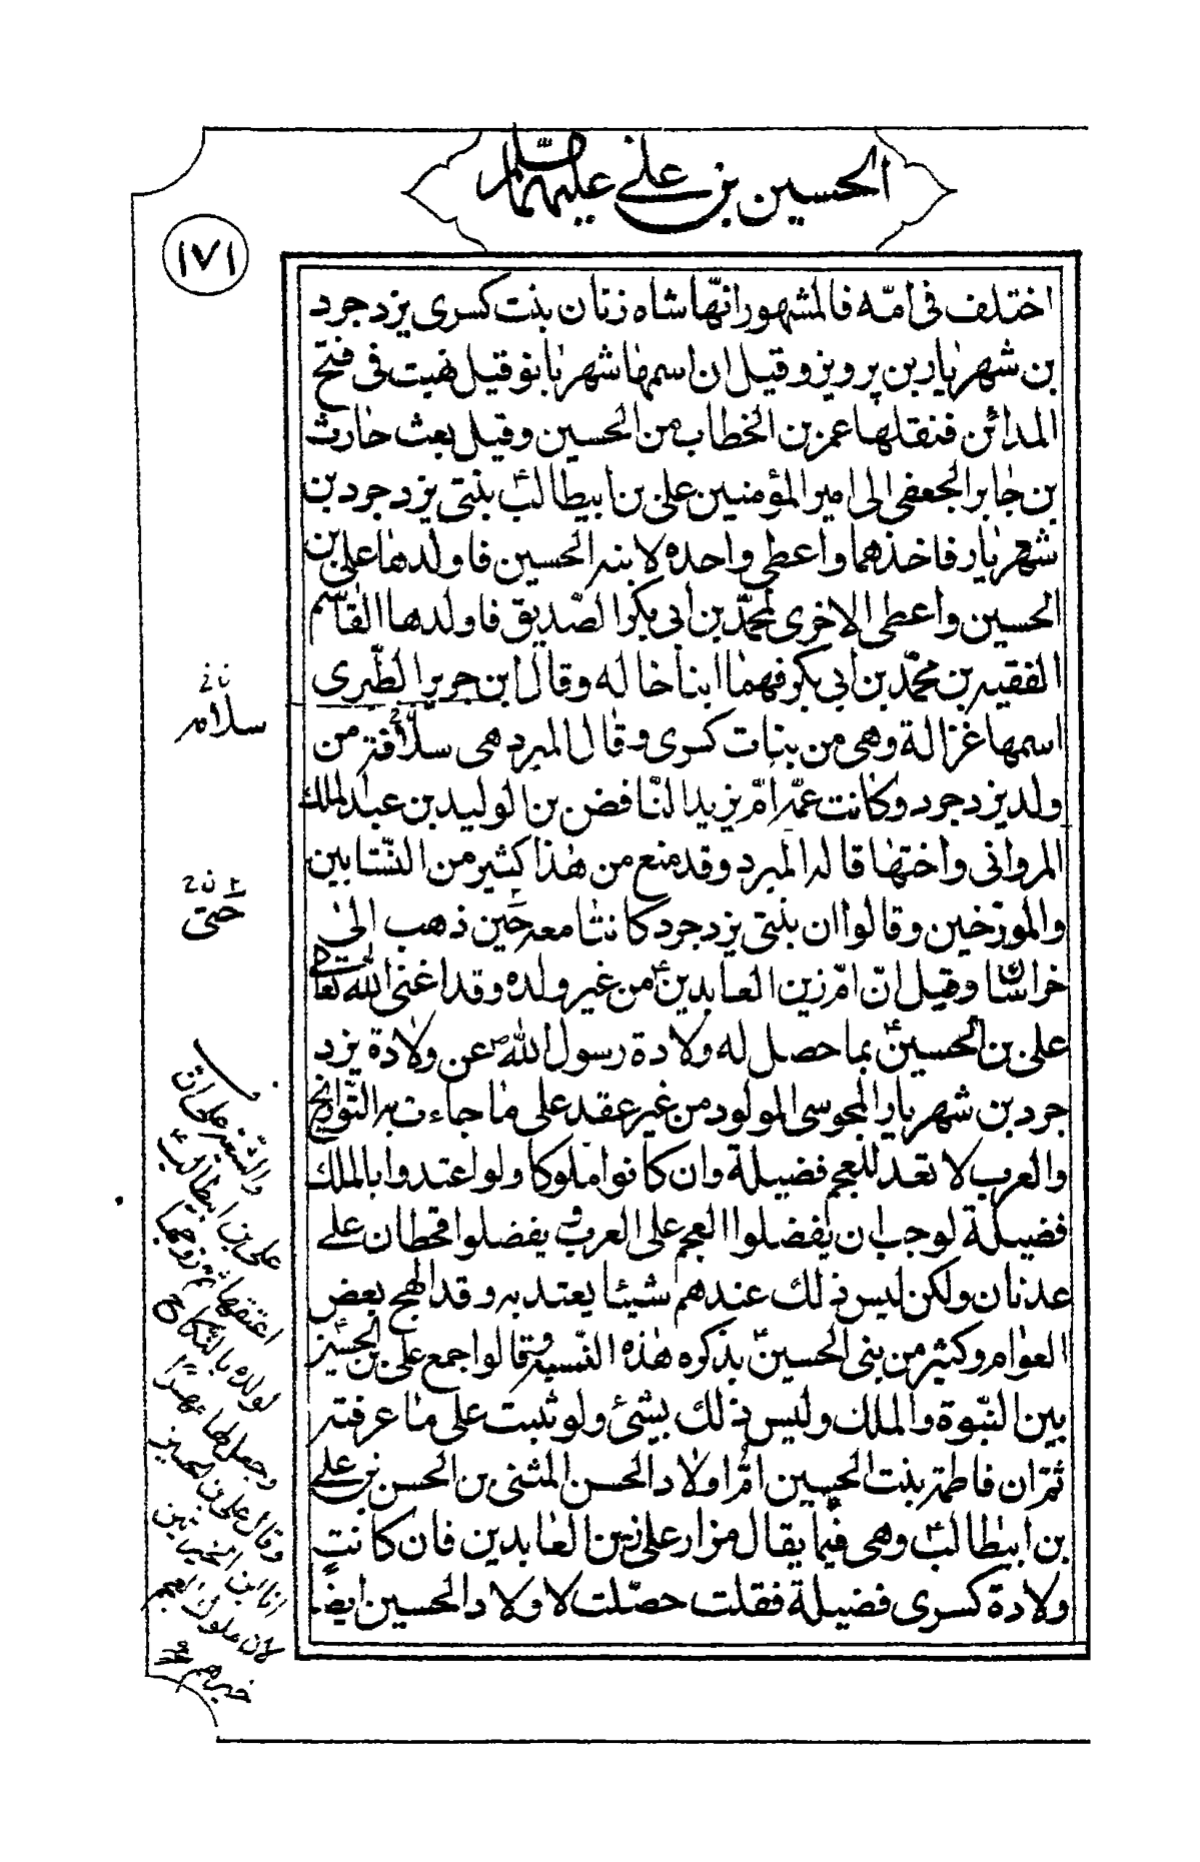 الحسين بن علي عليهما السلام
١٧١
اختلف فى امّه فالمشهور انّها شاه زنان بنت كسرى يزدجرد
بن شهريار بن پرويز وقيل ان اسمها شهربانو قيل نهبت فى فتح
المدائن فنقلها عمر بن الخطاب من الحسين وقيل بعث حارث
بن جابر الجعفى الى امير المؤمنين على بن ابيطالبؑ بنتى يزدجرد بن
شهريار فاخذهما واعطى واحده لابنه الحسين فاولدها على بن
الحسين واعطى الاخرى لمحمّد بن ابى بكر الصّديق فاولدها القاسم
الفقيه بن محمّد بن ابى بكر فهما ابنا خاله وقال ابن جرير الطّبرى
اسمها غزالة وهى من بنات كسرى وقال المبرد هى سلافة من
ولد يزدجرد وكانت عمّة امّ يزيد النّاقض بن الوليد بن عبد الملك
المروانى واختها قاله المبرد وقد منع من هذا كثير من النّسّابين
والمورّخين وقالوا ان بنتى يزدجرد كانتا معه حين ذهب الى
خراسان وقيل انّ امّ زين العابدينؑ من غير ولده وقد اغنى الله تعالى
على بن الحسينؑ بما حصل له ولادة رسول اللهؐ عن ولادة يزد
جرد بن شهريار المجوسى المولود من غير عقد على ما جاءت به التّواريخ
والعرب لا تعد للعجم فضيلة وان كانوا ملوكا ولو اعتدوا بالملك
فضيلة لوجب ان يفضلوا العجم على العرب و يفضلوا قحطان على
عدنان ولكن ليس ذلك عندهم شيئا يعتد به وقد لهج بعض
العوام وكثير من بنى الحسينؑ بذكره هذه النّسبة وقالوا جمع على بن الحسين
بين النّبوة والملك وليس ذلك بشئ ولو ثبت على ما عرفته
ثمّ ان فاطمة بنت الحسين امّ اولاد الحسن المثنى بن الحسن بن على
بن ابيطالبؑ وهى فيما يقال من ار على زين العابدين فان كانت
ولادة كسرى فضيلة فقلت حصّلت لاولاد الحسين ايضا
سلامه
حتى
والشيعة
على بن ابيطالبؑ
اعتقها ثم زوجها
لولده بالنكاح
وجعل لها مهرا
وقال على بن الحسين
انا ابن الخيرتين
لان ملوك العجم
خيرهم